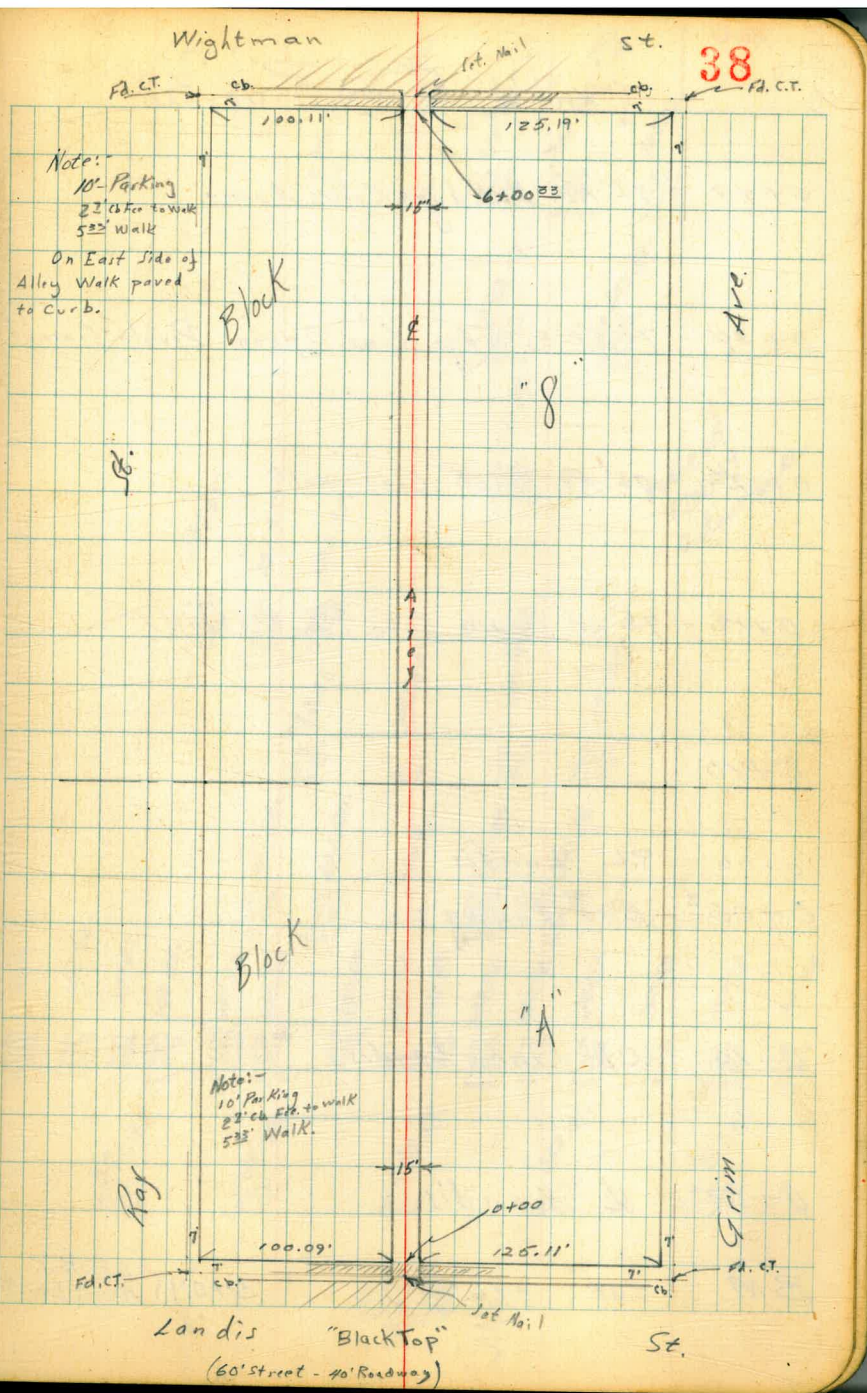 Wightman St.
38
Set. Nail
Fd. C.T. cb. cb. Fd. C.T.
7' 7'
100.11' 125.19'
7' 7'
Note:-
10'-Parking
5³³' Walk
On East Side of
Alley Walk paved
to Curb.
15'
6+00³³
Block
℄
"8"
Ave.
St.
Alley
Block
"A"
Note:-
10' Parking
5³³' Walk.
15'
Ray
Grim
0+00
7' 7'
100.09' 125.11'
7' 7'
Fd. C.T. cb. cb. Fd. C.T.
Set Nail
Landis "BlackTop" St.
(60' Street - 40' Roadway)